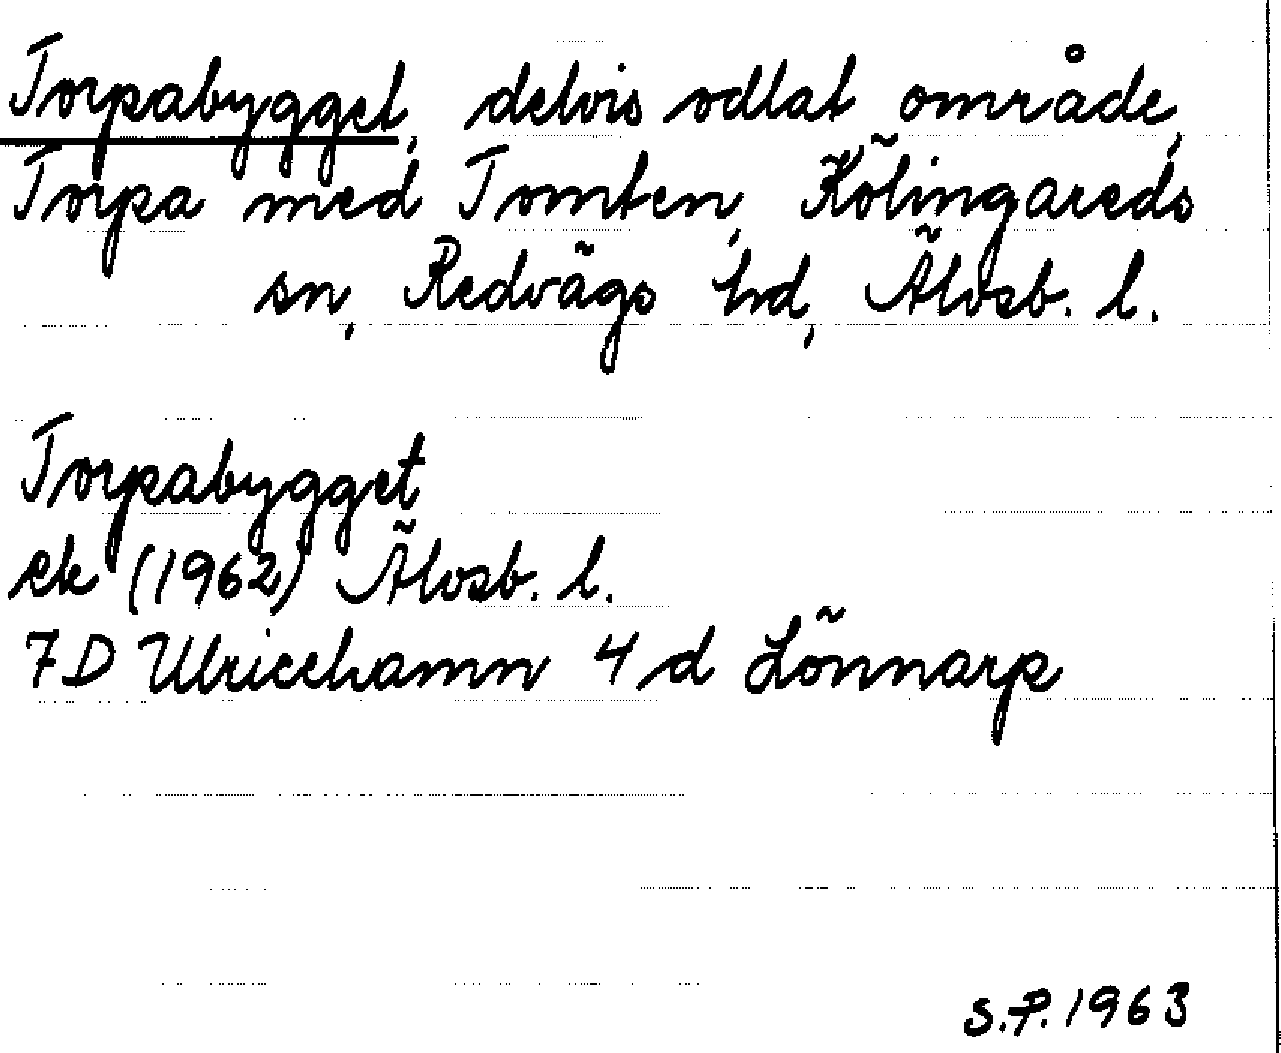 Torpabygget, delvis odlat område,
Torpa med Tomten, Kölingareds
sn, Redvägs hd, Älvsb. l.
Torpabygget
ek (1962) Älvsb. l.
7D Ulricehamn 4 d Lönnarp
S.P. 1963